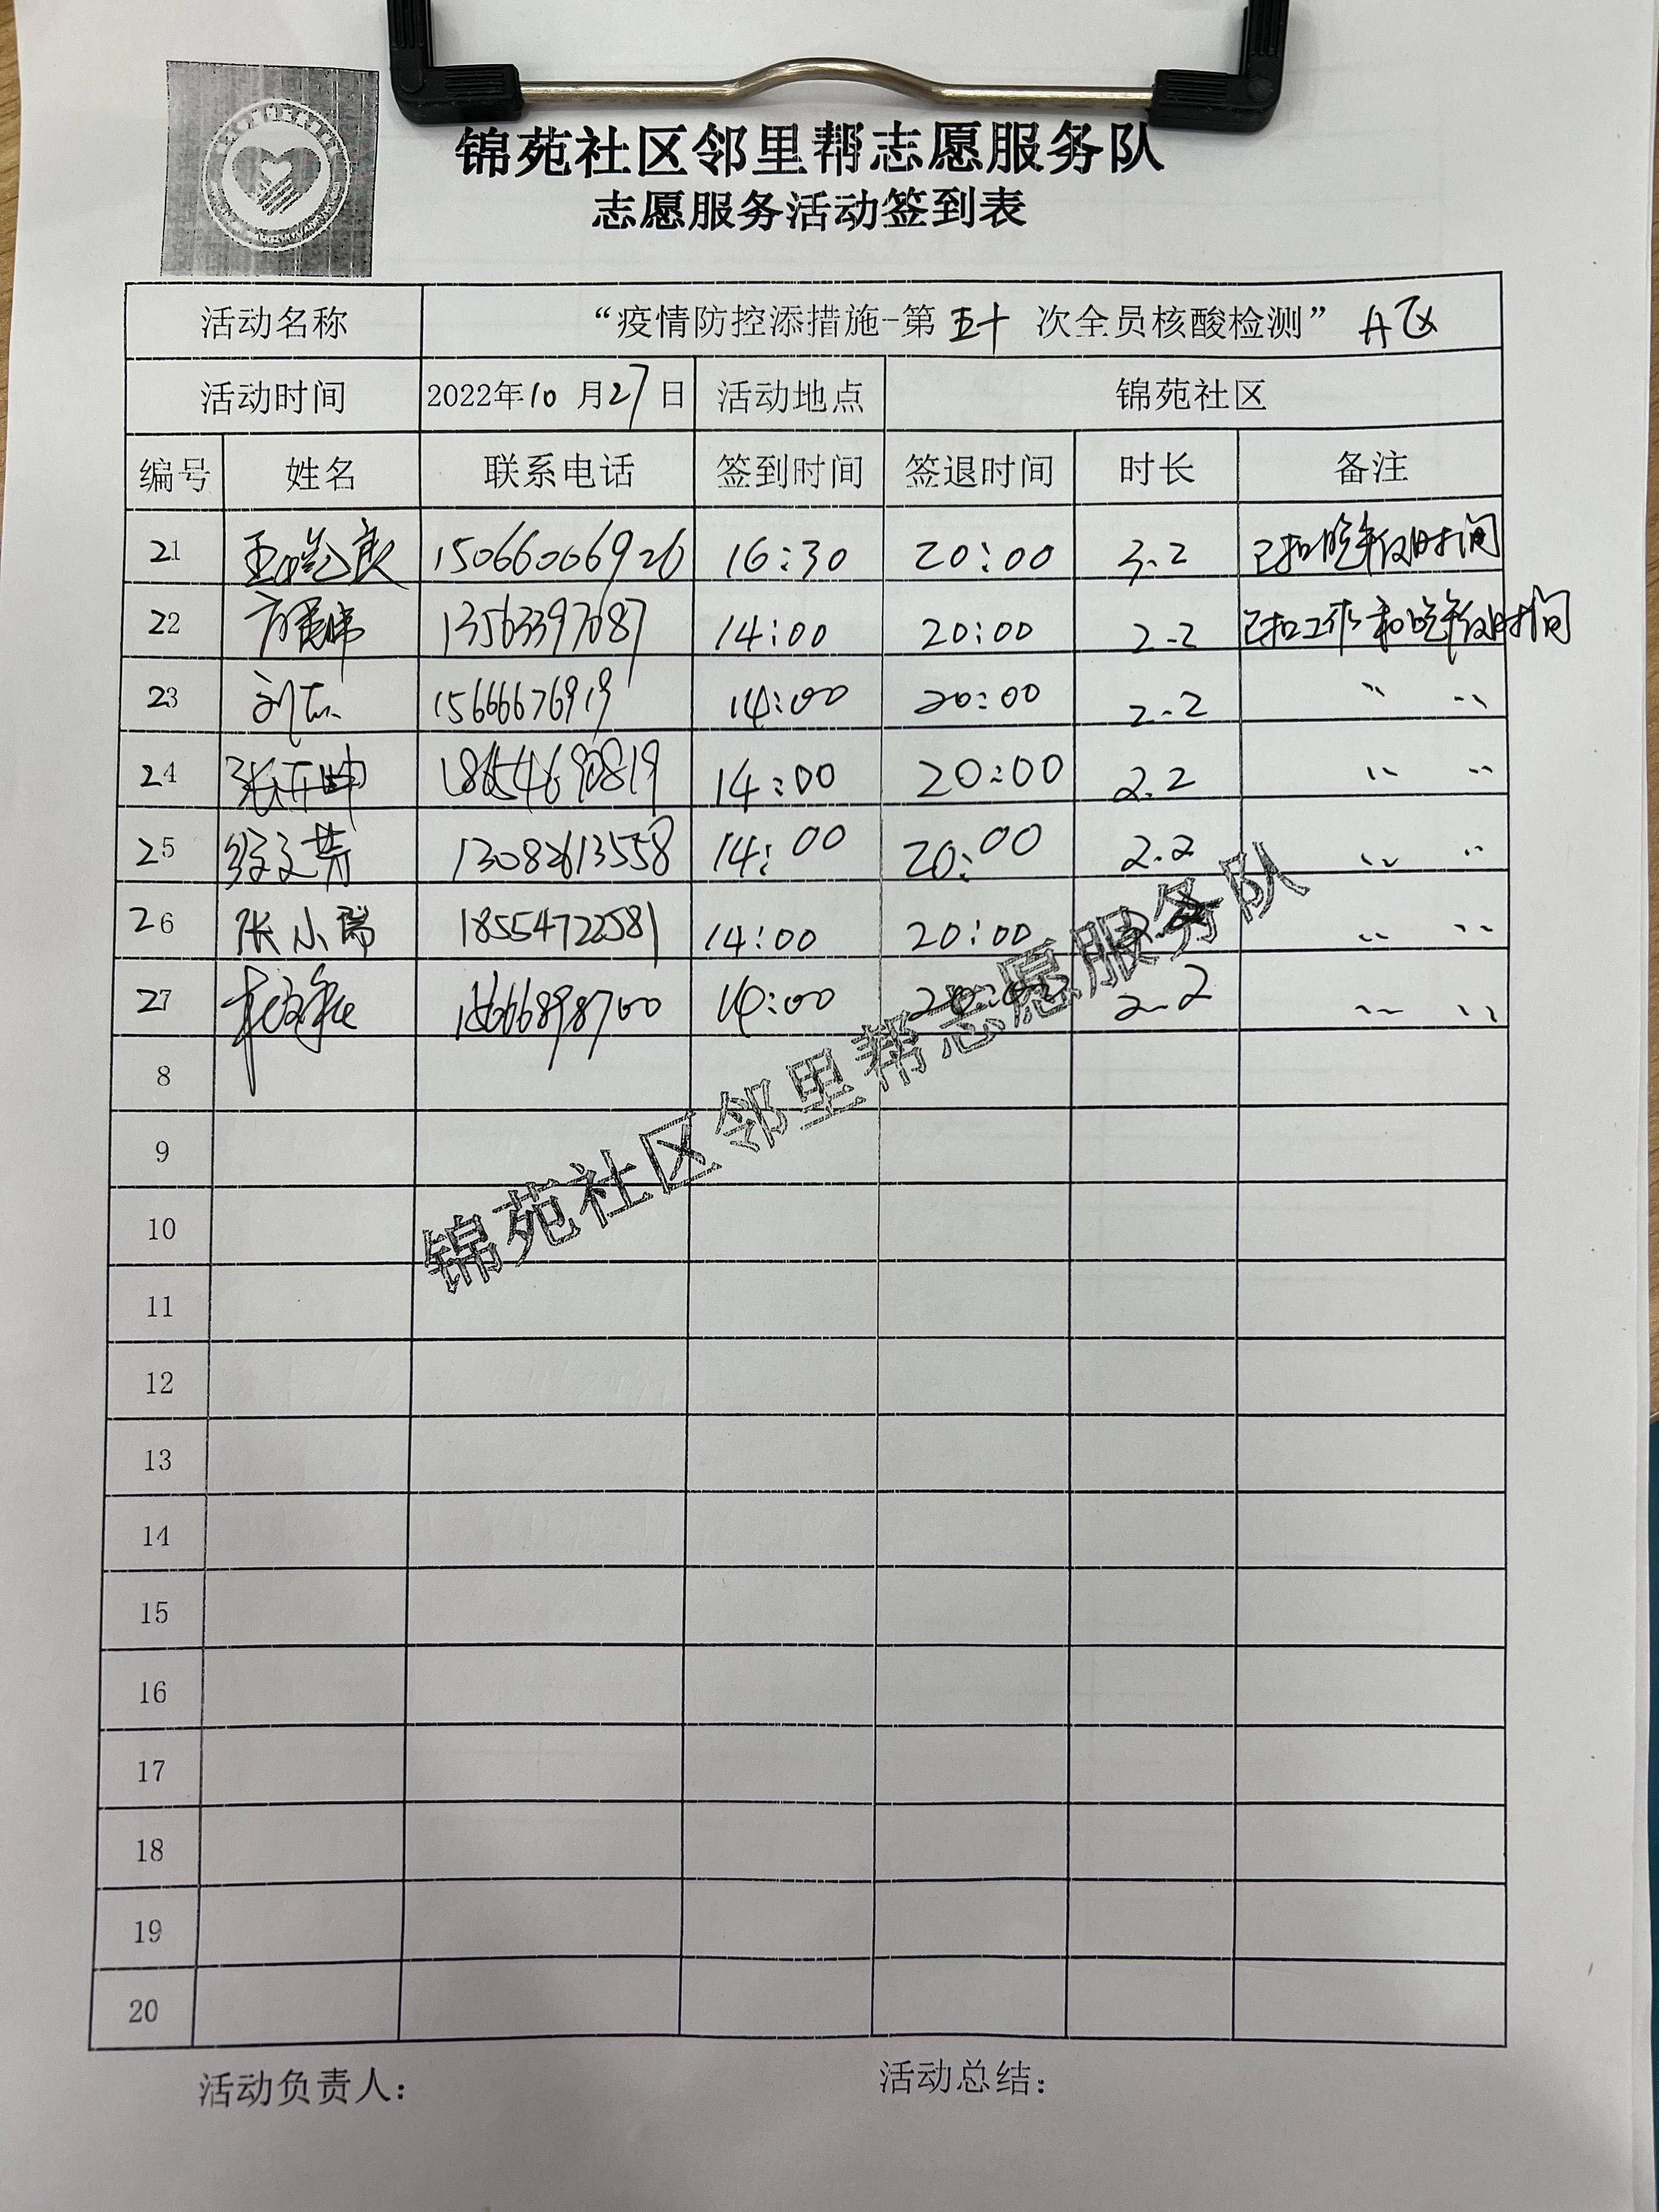 锦苑社区邻里帮志愿服务队
志愿服务活动签到表
活动名称 “疫情防控添措施-第 五十 次全员核酸检测” A区
活动时间 2022年10 月27日 活动地点 锦苑社区
编号 姓名 联系电话 签到时间 签退时间 时长 备注
21 15066006926 16:30 20:00 3.2 已扣吃饭时间
22 13563397687 14:00 20:00 2.2 已扣工作和吃饭时间
23 15666676919 14:00 20:00 2.2 〃 〃
24 18654690819 14:00 20:00 2.2 〃 〃
25 徐文芳 13082613558 14:00 20:00 2.2 〃 〃
26 张小瑞 18554722581 14:00 20:00 〃 〃
27 18666898700 14:00 20:00 2.2 〃 〃
8
9
10
11
12
13
14
15
16
17
18
19
20
锦苑社区邻里帮志愿服务队
活动负责人： 活动总结：